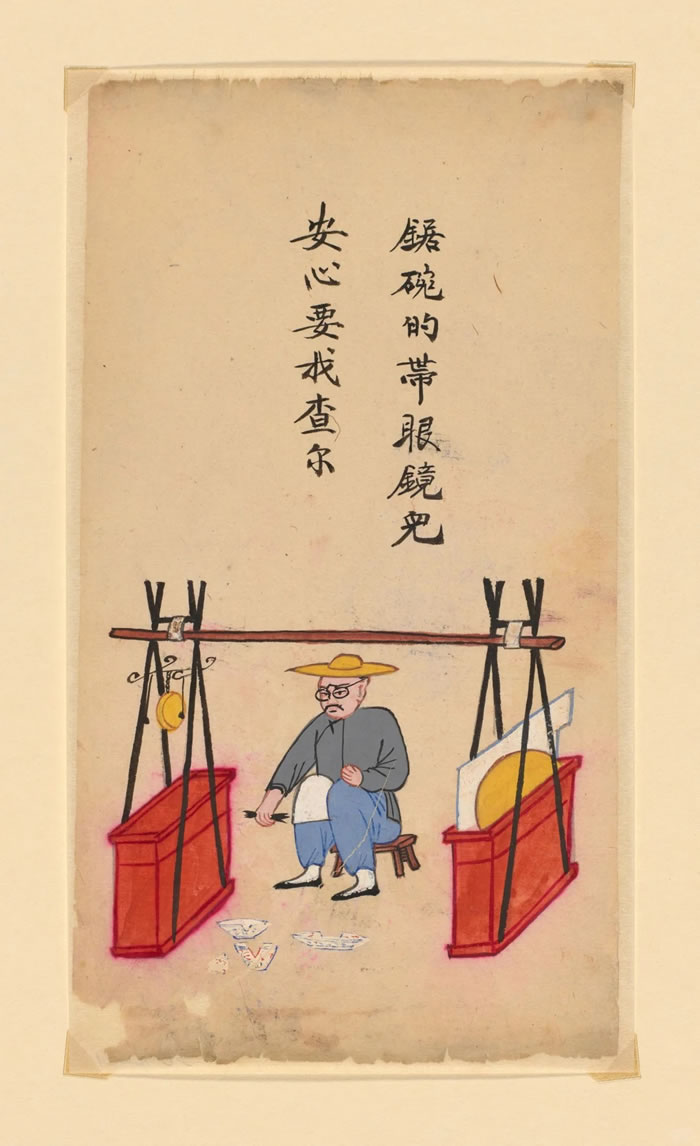 鋸碗的帶眼鏡兒
安心要找查尔